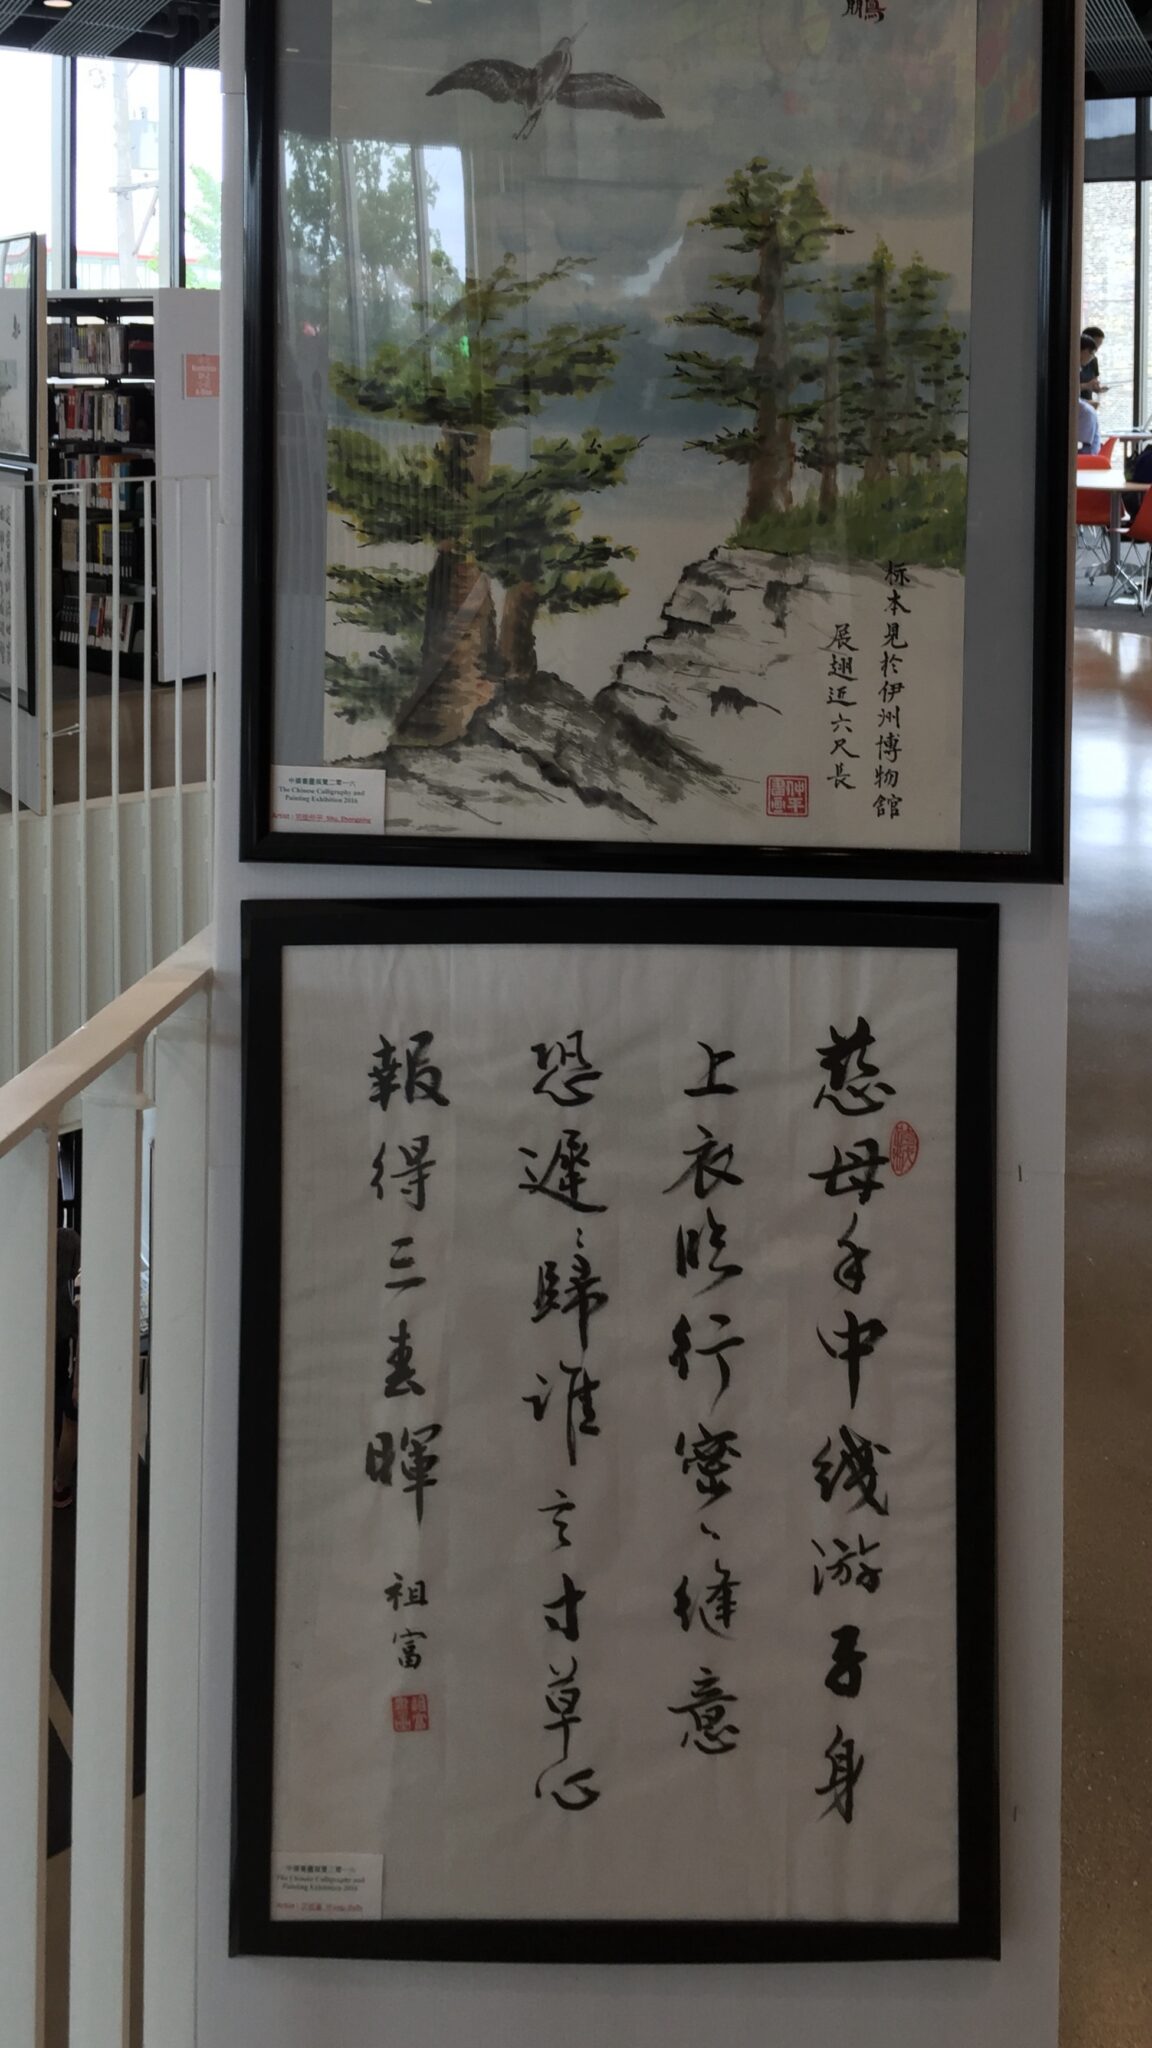 鵬
标本見於伊州博物館
展翅近六尺長
中華書畫展覽二零一六
The Chinese Calligraphy and
Painting Exhibition 2016
慈母手中线游子身
上衣临行密〻缝意
恐遲〻歸谁言寸草心
報得三春暉
祖富
中華書畫展覽二零一六
The Chinese Calligraphy and
Painting Exhibition 2016